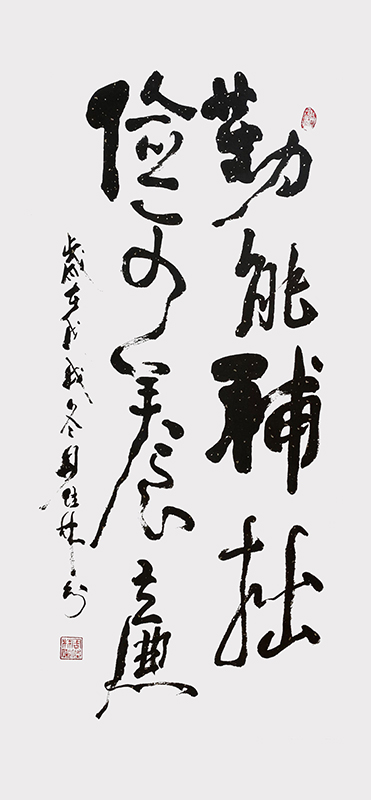 勤能補拙
儉可養廉
歲在戊戌冬